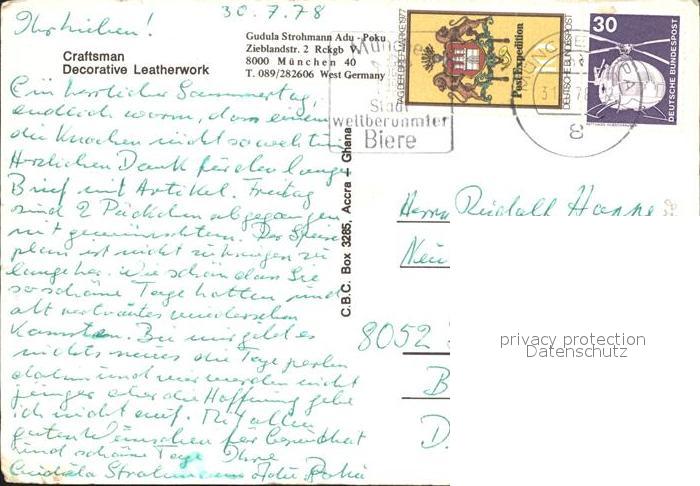 30.7.78
Ihr Lieben!
Craftsman
Decorative Leatherwork
Gudula Strohmann Adu - Poku
Zieblandstr. 2 Rckgb V.
8000 München 40
T. 089/282606 West Germany
Ein herrlicher Sommertag,
endlich warm, dass einem
die Knochen nicht so weh tun
Herzlichen Dank für den lange
Brief mit Artikel. Freitag
sind 2 Päckchen abgegangen
mit gewünschtem. Der Speise
plan ist nicht
lange her. Wie schön dass Sie
so schöne Tage hatten und
alt vertrautes wiedersehen
konnten. Bei mir gibt es
nichts neues die Tage
dahin und wir werden nicht
jünger aber die Hoffnung gebe
ich nicht auf. Mit allen
guten Wünschen für Gesundheit
und schöne Tage Ihre
Gudula Strohmann Adu Poku
C.B.C. Box 3285, Accra – Ghana
TAG DER BRIEFMARKE 1977
Post Expedition
DEUTSCHE BUNDESPOST
30
DEUTSCHE BUNDESPOST
München
Stadt
weltberühmter
Biere
8
Herrn Rudolf
8052
B
D.
privacy protection
Datenschutz